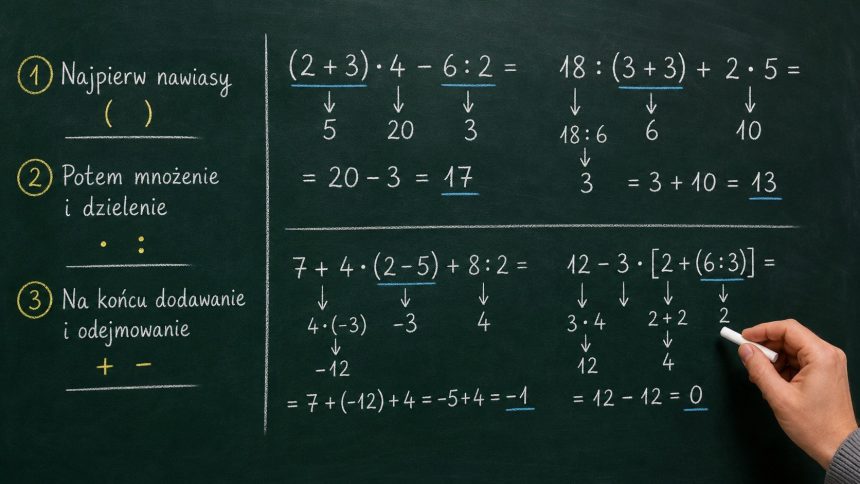 1 Najpierw nawiasy
( )
2 Potem mnożenie
i dzielenie
· :
3 Na końcu dodawanie
i odejmowanie
+ −
(2 + 3) · 4 − 6 : 2 =
↓ ↓ ↓
5 20 3
= 20 − 3 = 17
18 : (3 + 3) + 2 · 5 =
↓ ↓ ↓
18 : 6 6 10
↓
3 = 3 + 10 = 13
7 + 4 · (2 − 5) + 8 : 2 =
↓ ↓ ↓
4 · (−3) −3 4
↓
−12
= 7 + (−12) + 4 = −5 + 4 = −1
12 − 3 · [2 + (6 : 3)] =
↓ ↓ ↓ ↓
3 · 4 2 + 2 2
↓ ↓
12 4
= 12 − 12 = 0